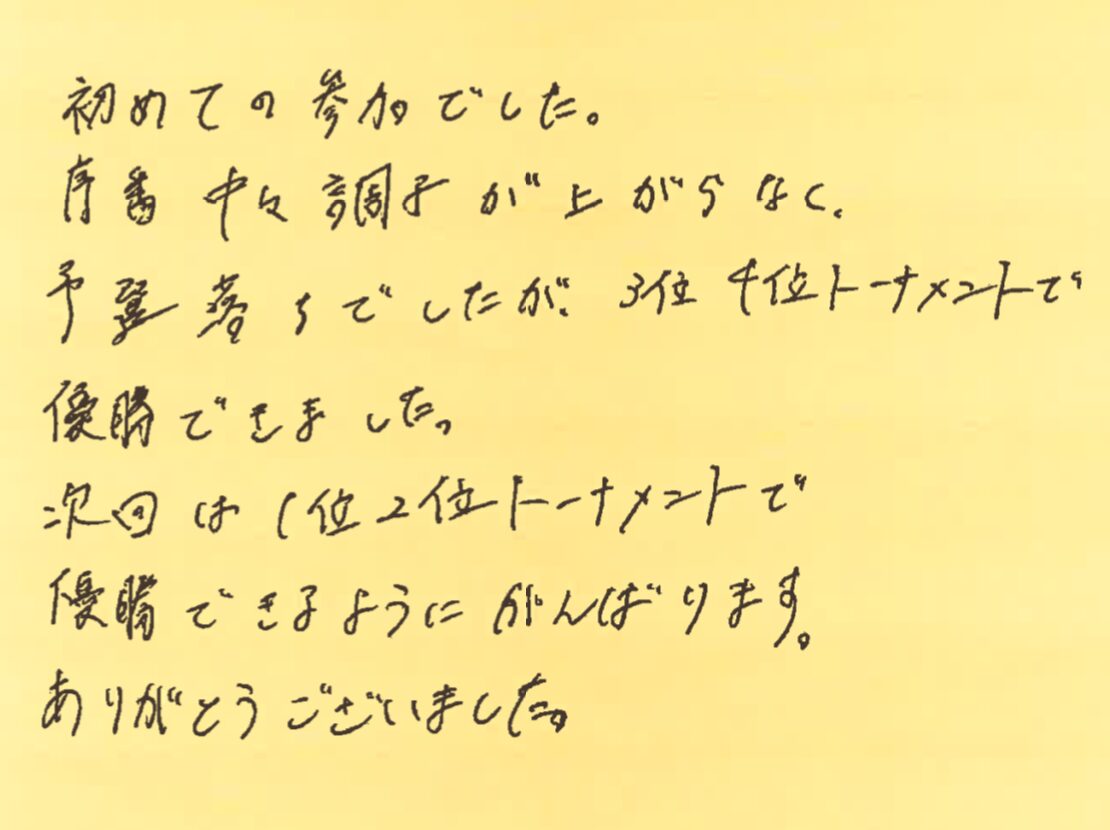 初めての参加でした。
序番 中々 調子が上がらなく、
予選落ちでしたが、3位 4位トーナメントで
優勝できました。
次回は1位2位トーナメントで
優勝できるようにがんばります。
ありがとうございました。